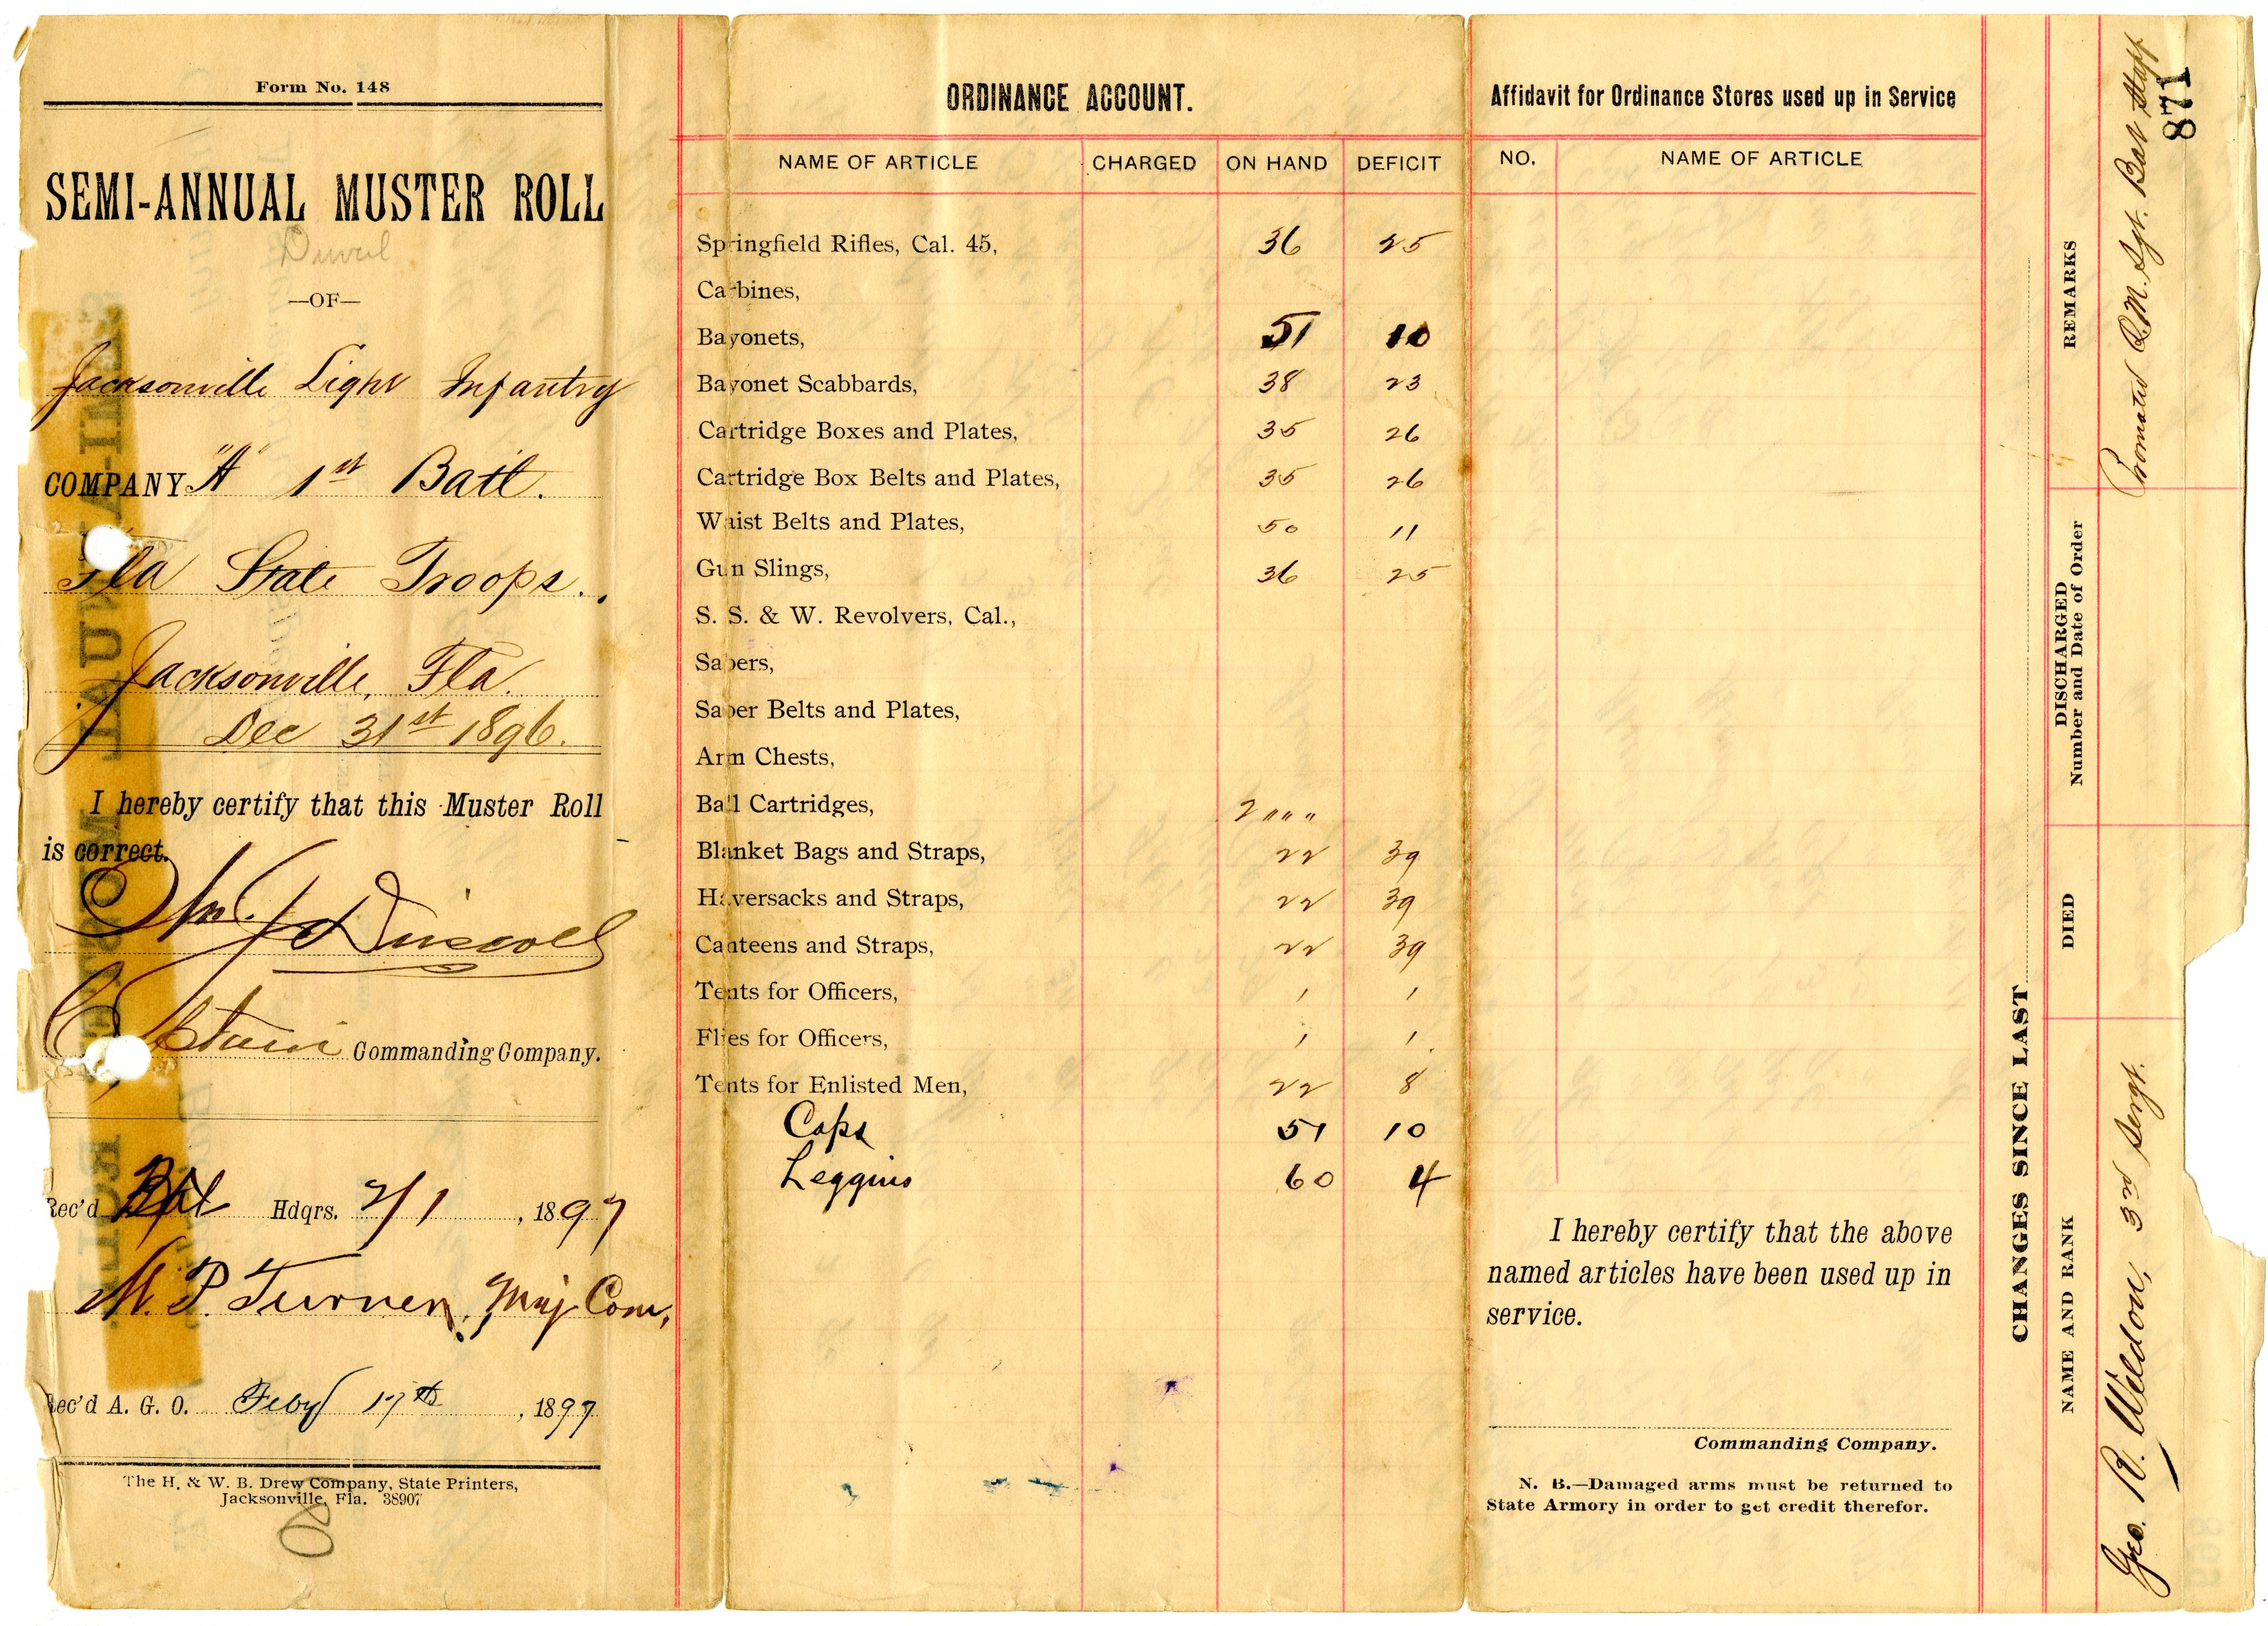 Form No. 148
SEMI-ANNUAL MUSTER ROLL
Duval
—OF—
Jacksonville Light Infantry
COMPANY "A" 1st Batt.
Fla State Troops.
Jacksonville, Fla.
Dec 31st 1896.
I hereby certify that this Muster Roll
is correct.
J. Driscoll
Commanding Company.
Rec'd Bat Hdqrs. 2/1, 1897
M. P. Turner, Maj Com,
Rec'd A. G. O. Feby 17th, 1897
The H. & W. B. Drew Company, State Printers,
Jacksonville, Fla. 38907
ORDINANCE ACCOUNT.
NAME OF ARTICLE CHARGED ON HAND DEFICIT
Springfield Rifles, Cal. 45, 36 25
Carbines,
Bayonets, 51 10
Bayonet Scabbards, 38 23
Cartridge Boxes and Plates, 35 26
Cartridge Box Belts and Plates, 35 26
Waist Belts and Plates, 50 11
Gun Slings, 36 25
S. S. & W. Revolvers, Cal.,
Sabers,
Saber Belts and Plates,
Arm Chests,
Ball Cartridges,
Blanket Bags and Straps, 22 39
Haversacks and Straps, 22 39
Canteens and Straps, 22 39
Tents for Officers, 1 1
Flies for Officers, 1 1
Tents for Enlisted Men, 22 8
Caps 51 10
Leggins 60 4
Affidavit for Ordinance Stores used up in Service
NO. NAME OF ARTICLE
I hereby certify that the above
named articles have been used up in
service.
Commanding Company.
N. B.—Damaged arms must be returned to
State Armory in order to get credit therefor.
CHANGES SINCE LAST
NAME AND RANK DIED DISCHARGED Number and Date of Order REMARKS
Geo. R. Weldon, 3rd Sergt. Promoted Q.M. Sgt. Bat Staff
871